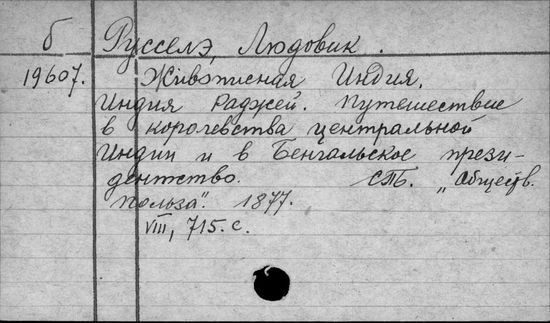 б Русселэ, Людовик.
19607. Живописная Индия.
Индия Раджей. Путешествие
в королевства центральной
Индии и в Бенгальское прези-
дентство. СПБ. „Обществ.
польза". 1877.
VIII, 715. с.